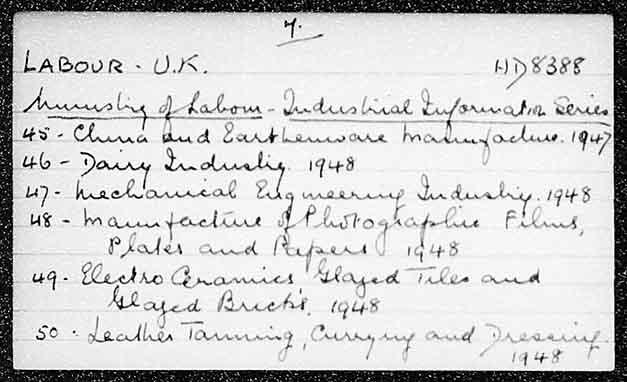 7.
LABOUR - U.K. HD8388
Ministry of Labour - Industrial Information Series
45 - China and Earthenware Manufacture. 1947
46 - Dairy Industry. 1948
47 - Mechanical Engineering Industry. 1948
48 - Manufacture of Photographic Films,
Plates and Papers 1948
49. Electro Ceramics Glazed Tiles and
Glazed Bricks. 1948
50. Leather Tanning, Currying and Dressing.
1948